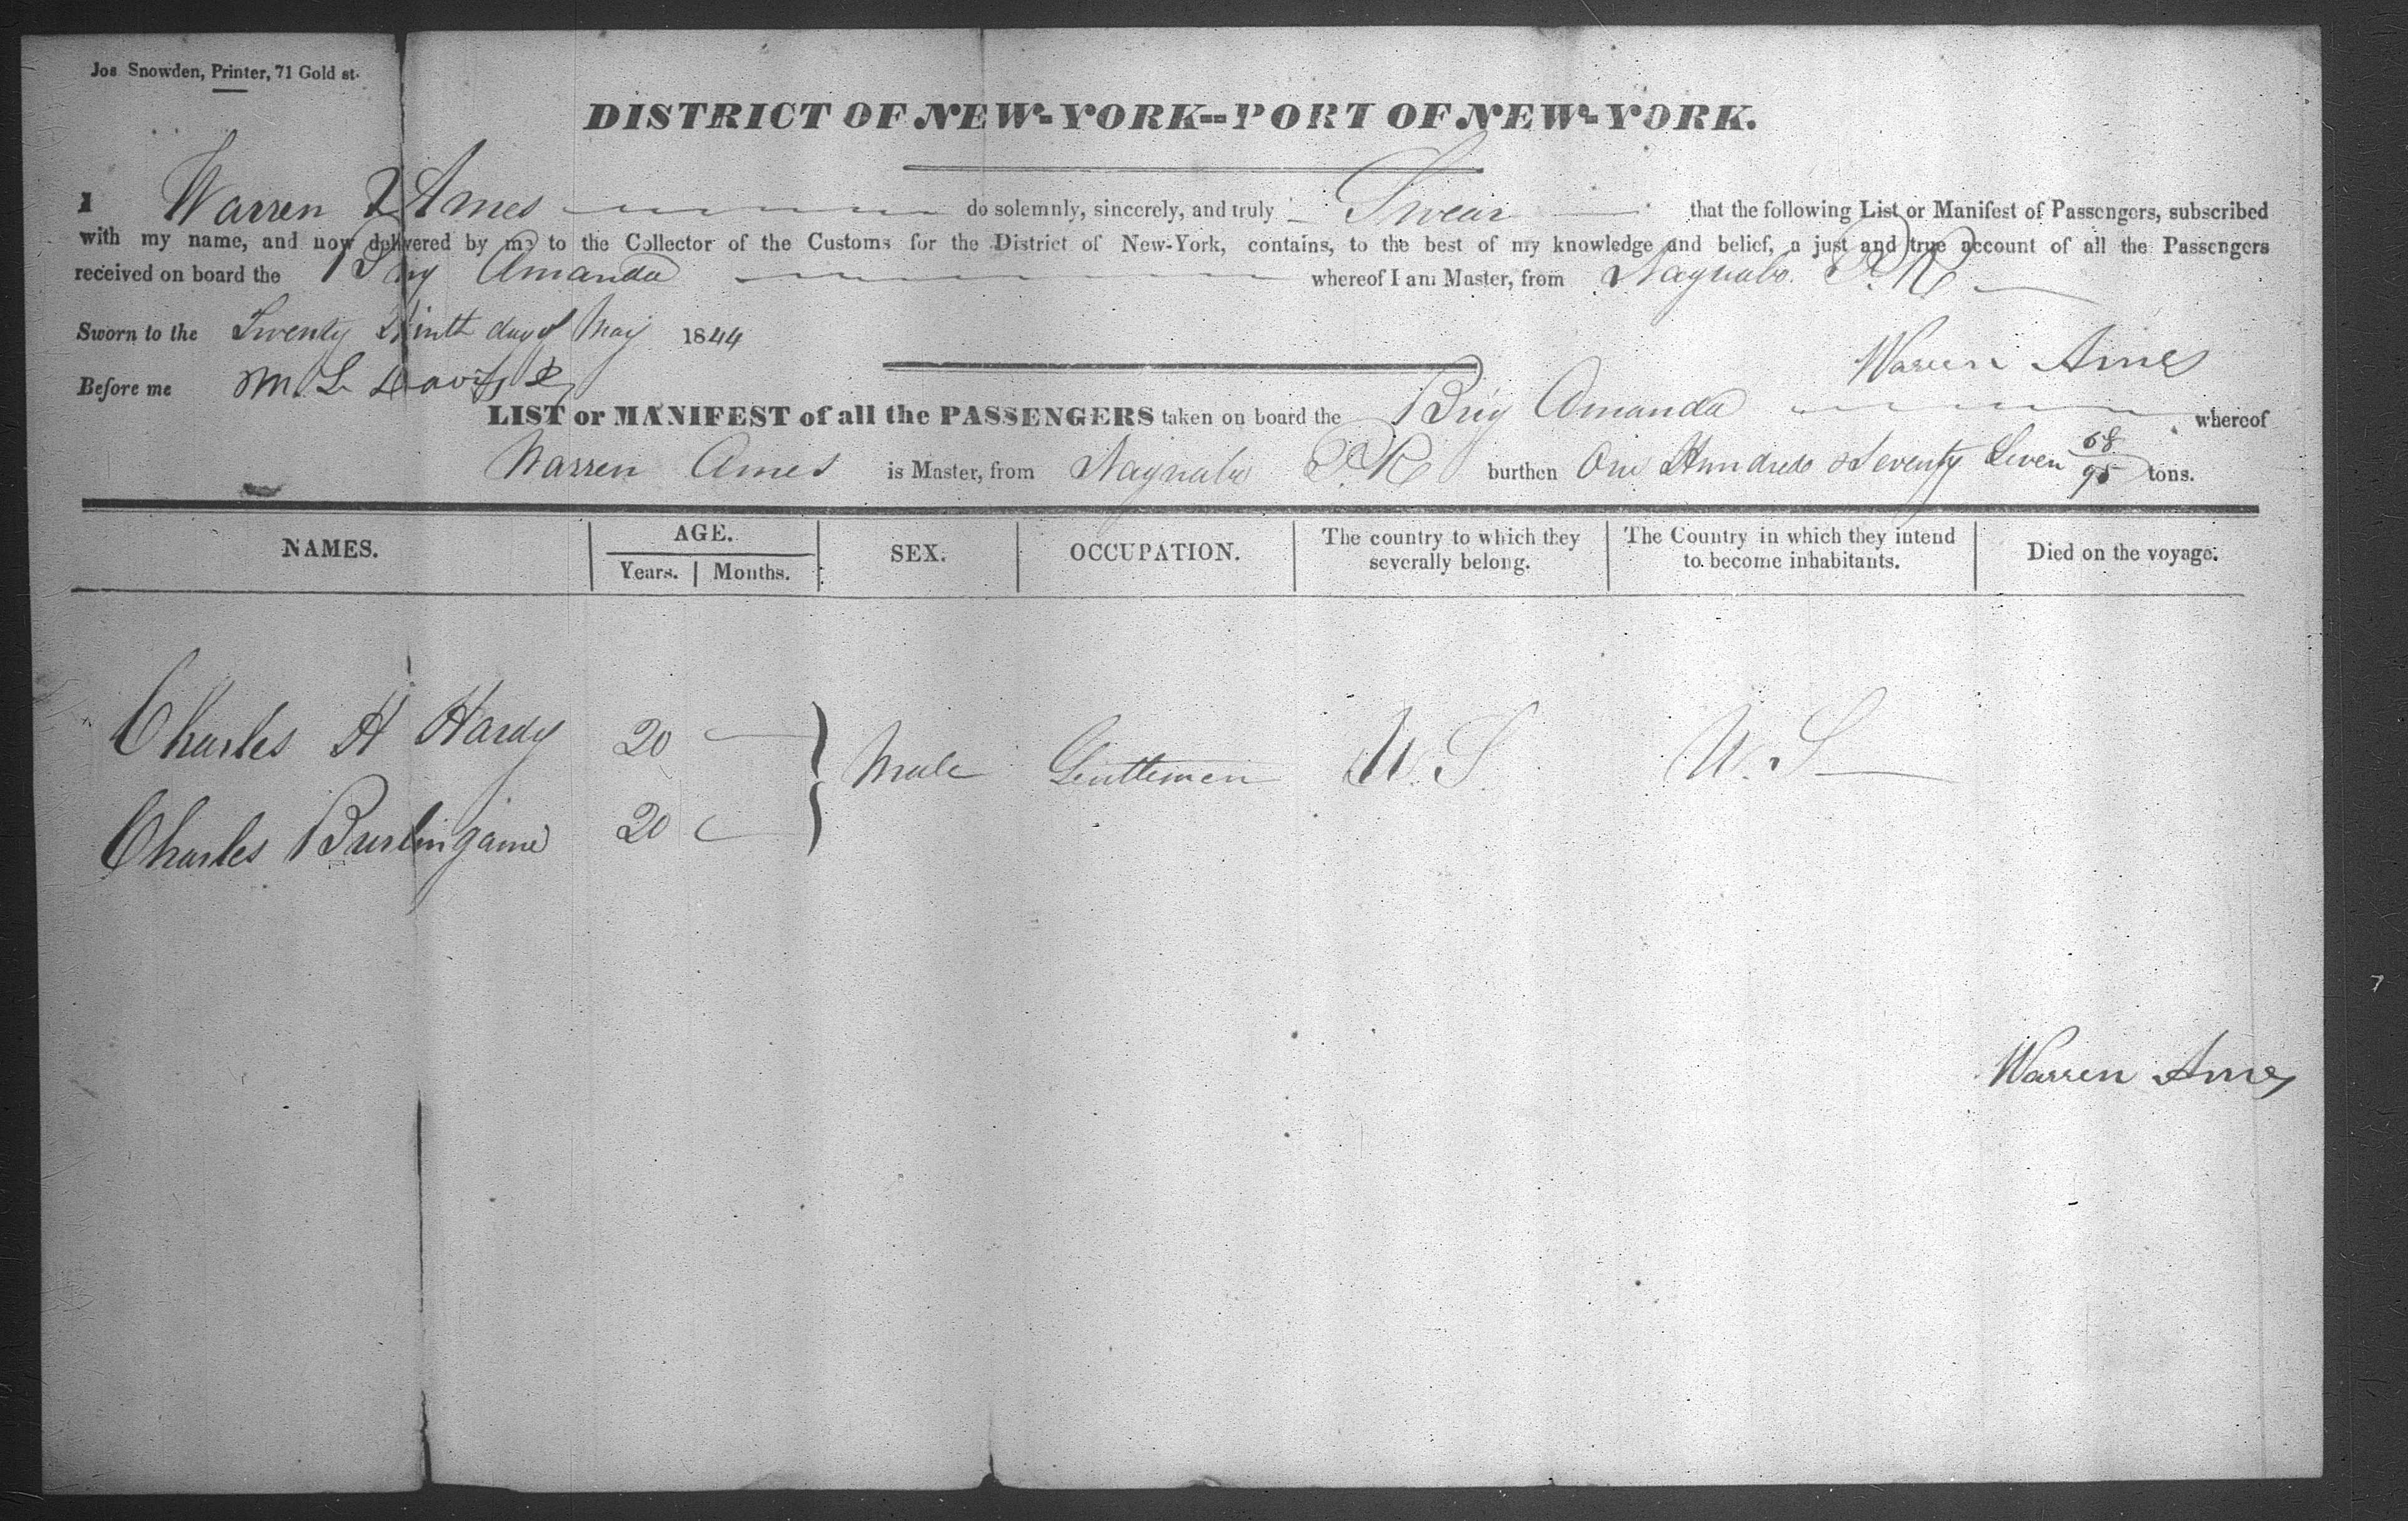 Jos Snowden, Printer, 71 Gold st.
DISTRICT OF NEW-YORK--PORT OF NEW-YORK.
I Warren Ames do solemnly, sincerely, and truly Swear that the following List or Manifest of Passengers, subscribed
with my name, and now delivered by me to the Collector of the Customs for the District of New-York, contains, to the best of my knowledge and belief, a just and true account of all the Passengers
received on board the Brig Amanda whereof I am Master, from Naguabo P.R.
Sworn to the Twenty Ninth day of May 1844
Warren Ames
Before me M. L. Davis
LIST or MANIFEST of all the PASSENGERS taken on board the Brig Amanda whereof
Warren Ames is Master, from Naguabo P.R burthen One Hundred & Seventy Seven 68/95 tons.
NAMES. AGE. SEX. OCCUPATION. The country to which they severally belong. The Country in which they intend to become inhabitants. Died on the voyage.
Years. Months.
Charles H Hardy 20
Male Gentlemen U.S. U.S
Charles Burlingame 20
Warren Ames